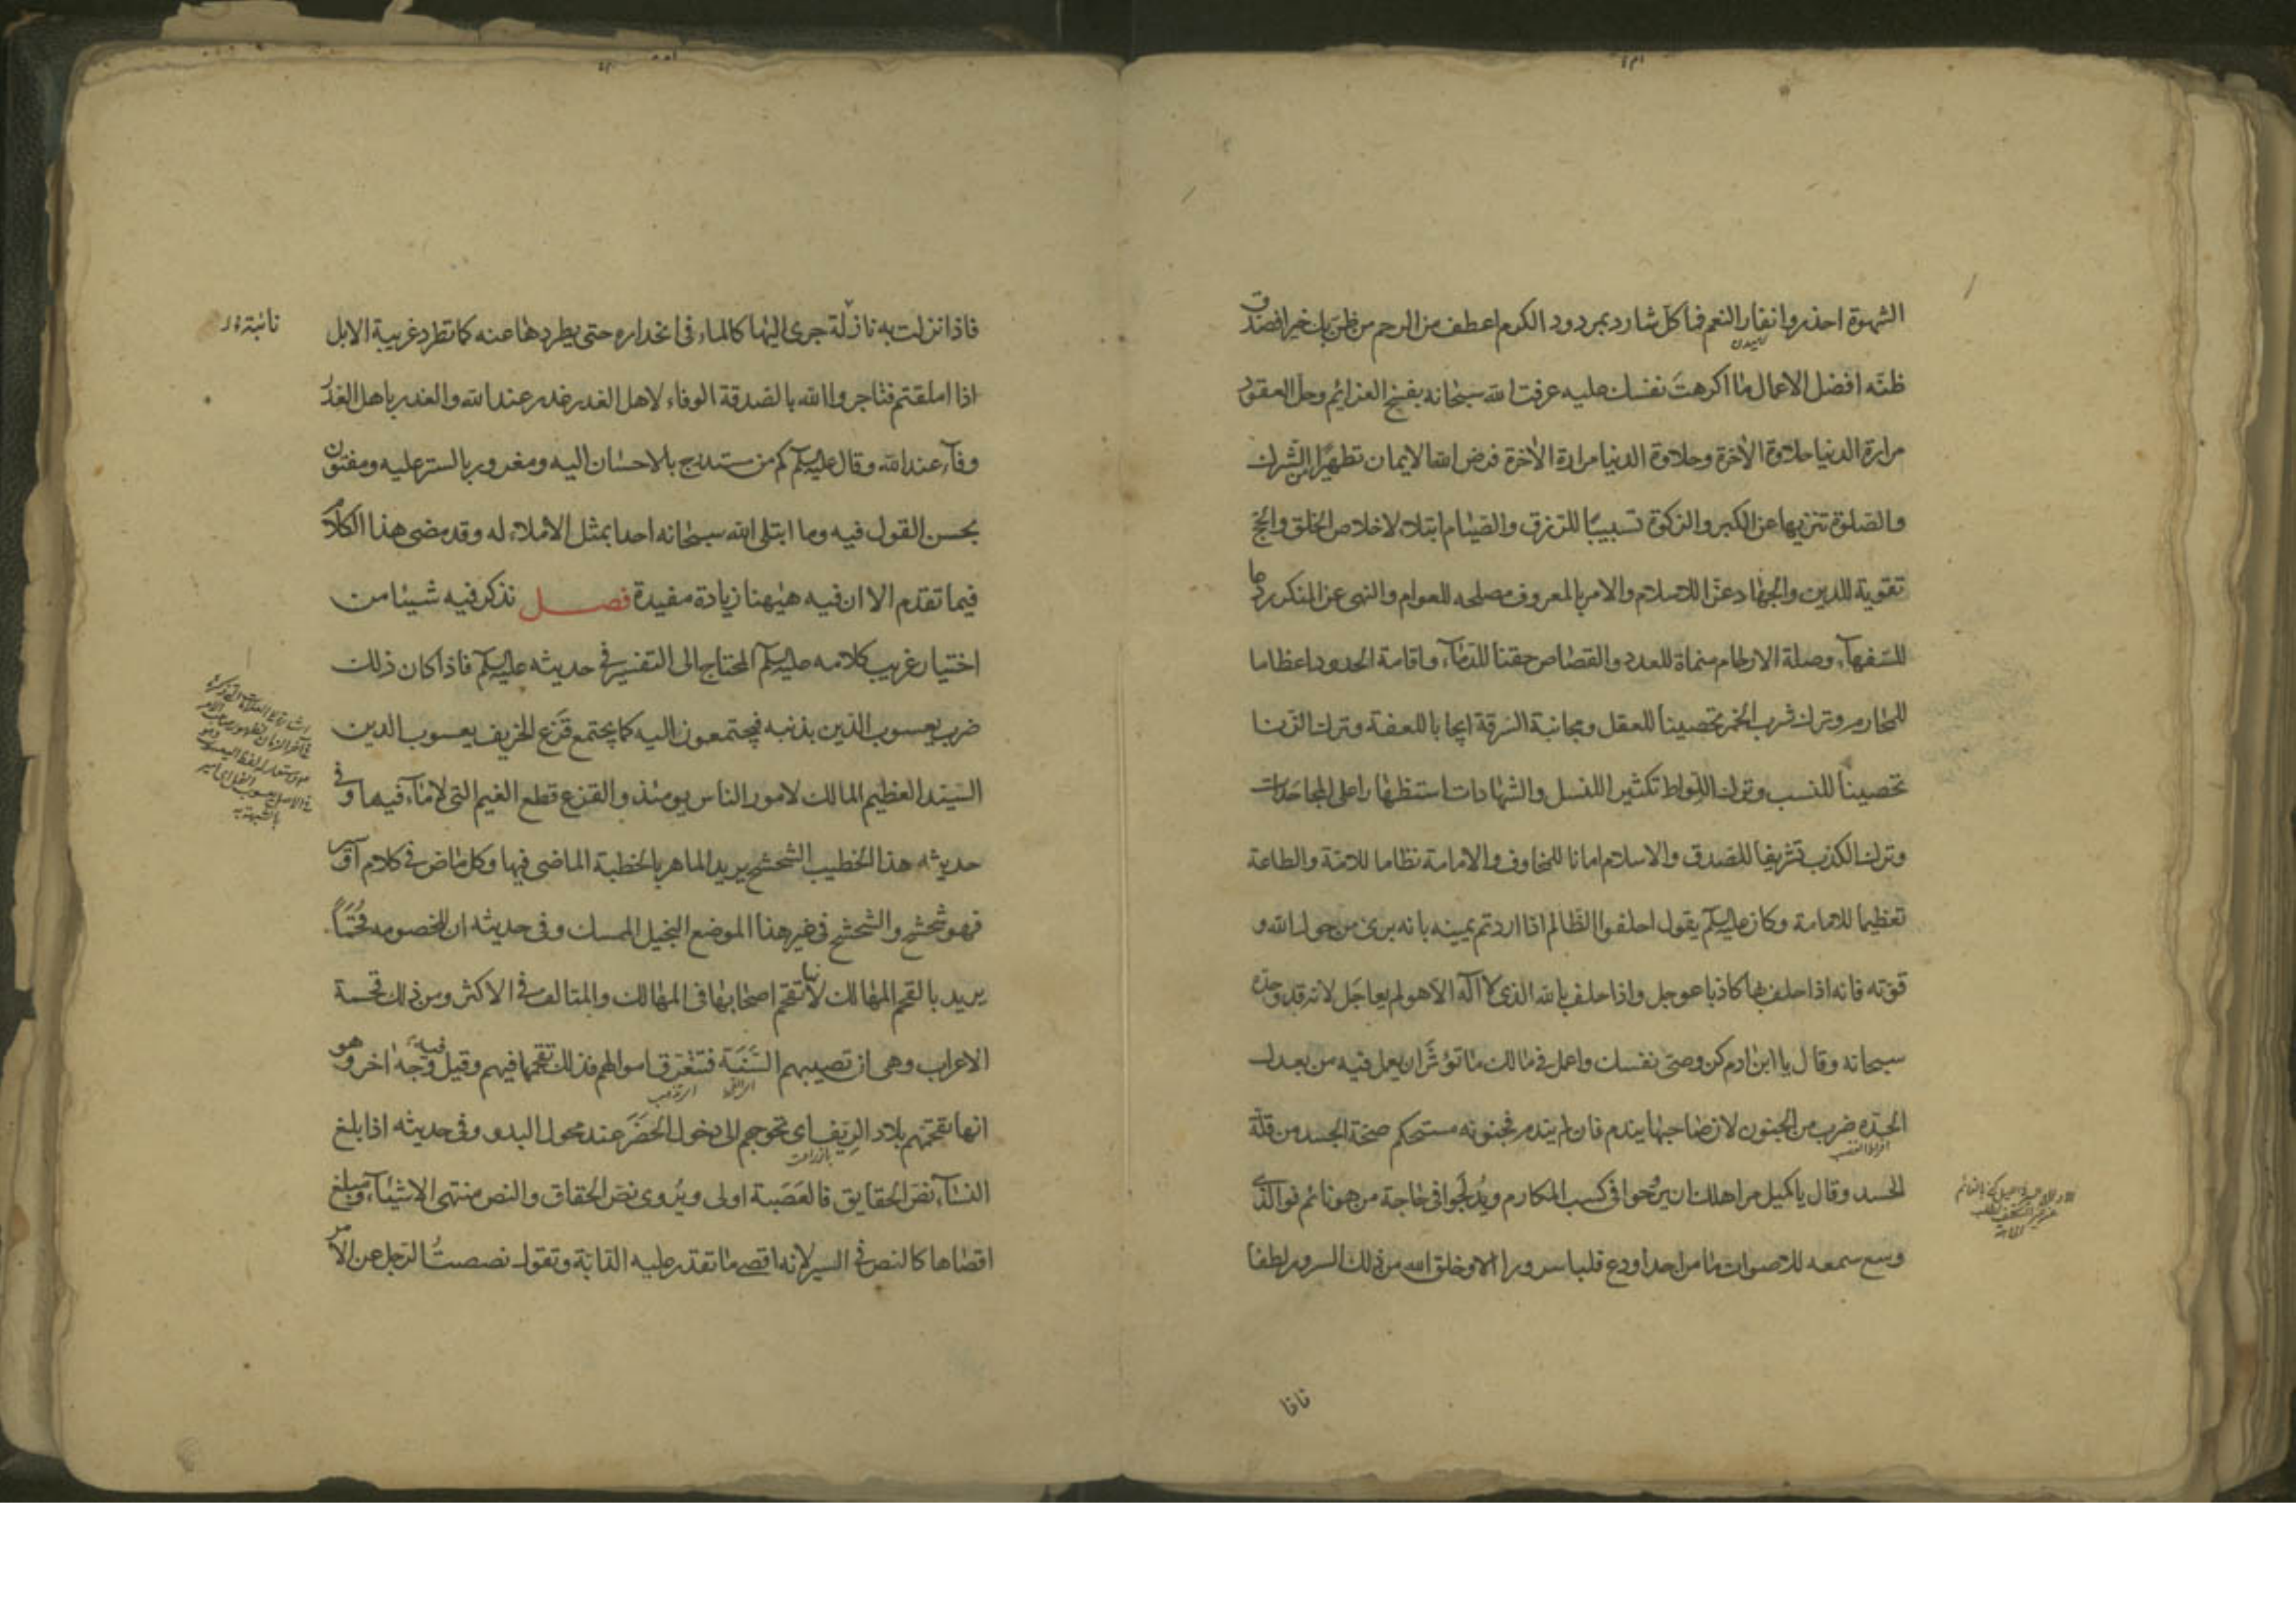 الشهوة احذروا نفار النعم فما كل شارد بمردود الكرم اعطف من الرحم من ظن بك خيرا فصدق
ظنه افضل الاعمال ما اكرهت نفسك عليه عرفت الله سبحانه بفسخ العزائم وحل العقود
مرارة الدنيا حلاوة الآخرة وحلاوة الدنيا مرارة الآخرة فرض الله الايمان تطهيرا من الشرك
والصلوة تنزيها عن الكبر والزكوة تسبيبا للرزق والصيام ابتلاء لاخلاص الخلق والحج
تقوية للدين والجهاد عزا للاسلام والامر بالمعروف مصلحه للعوام والنهى عن المنكر ردعا
للسفهآء وصلة الارحام منماة للعدد والقصاص حقنا للدمآء واقامة الحدود اعظاما
للمحارم وترك شرب الخمر تحصينا للعقل ومجانبة السرقة ايجابا للعفة وترك الزنا
تحصينا للنسب وترك اللواط تكثيرا للنسل والشهادات استظهارا على المجاحدات
وترك الكذب تشريفا للصدق والاسلام امانا للمخاوف والامامة نظاما للامة والطاعة
تعظيما للامامة وكان عليه السلم يقول احلفوا الظالم اذا اردتم يمينه بانه برئ من حول الله و
قوته فانه اذا حلف بها كاذبا عوجل واذا حلف بالله الذى لا اله الا هو لم يعاجل لانه قد وحده
سبحانه وقال يا ابن ادم كن وصى نفسك واعمل فى مالك ما تؤثر ان يعمل فيه من بعدك
الحدة ضرب من الجنون لان صاحبها يندم فان لم يندم فجنونه مستحكم صحة الجسد من قلة
افراط الغضب
الحسد وقال يا كميل مر اهلك ان يروحوا فى كسب المكارم ويدلجوا فى حاجة من هو نائم فو الذى
وسع سمعه للاصوات ما من احد اودع قلبا سرورا الا وخلق الله من ذلك السرور لطفا
فاذا
فاذا نزلت به نازلة جرى اليها كالماء فى انحداره حتى يطردها عنه كما تطرد غريبة الابل
نائبة
اذا املقتم فتاجروا الله بالصدقة الوفاء لاهل الغدر غدر عند الله والغدر باهل الغدر
وفآء عند الله وقال عليه السلم كم من مستدرج بالاحسان اليه ومغرور بالستر عليه ومفتون
بحسن القول فيه وما ابتلى الله سبحانه احدا بمثل الاملاء له وقد مضى هذا الكلام
فيما تقدم الا ان فيه هيهنا زيادة مفيدة فصل نذكر فيه شيئا من
اختيار غريب كلامه عليه السلم المحتاج الى التفسير فى حديثه عليه السلم فاذا كان ذلك
ضرب يعسوب الدين بذنبه فيجتمعون اليه كما يجتمع قزع الخريف يعسوب الدين
السيد العظيم المالك لامور الناس يومئذ والقزع قطع الغيم التى لا مآء فيها وفى
حديثه هذا الخطيب الشحشح يريد الماهر بالخطبة الماضى فيها وكل ماض فى كلام او سير
فهو شحشح والشحشح فى غير هذا الموضع البخيل الممسك وفى حديثه ان للخصومه قحما
يريد بالقحم المهالك لانها تقحم اصحابها فى المهالك والمتالف فى الاكثر ومن ذلك قحمة
الاعراب وهى ان تصيبهم السنة فتتعرق اموالهم فذلك تقحمها فيهم وقيل فيه وجه اخر وهو
انها تقحمهم بلاد الريف اى تحوجهم الى دخول الحضر عند محول البدو وفى حديثه اذا بلغ
النسآء نص الحقايق فالعصبة اولى ويروى نص الحقاق والنص منتهى الاشيآء ومبلغ
اقصاها كالنص فى السير لانه اقصى ما تقدر عليه الدابة وتقول نصصت الرجل عن الامر